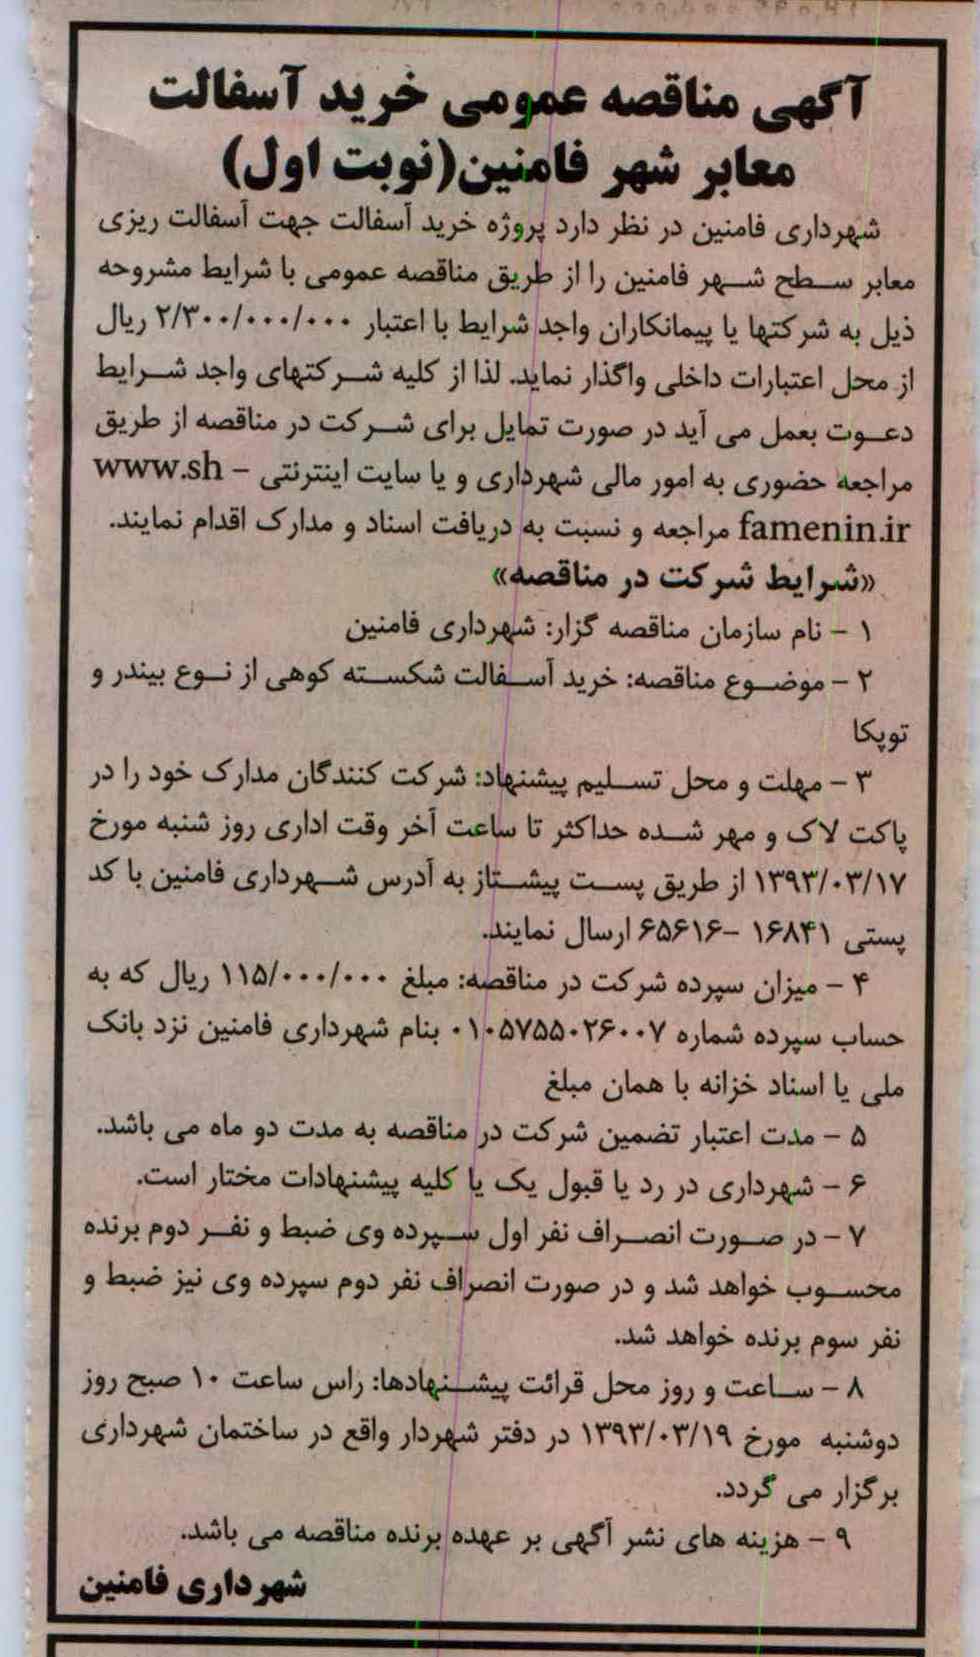 آگهی مناقصه عمومی خرید آسفالت
معابر شهر فامنین(نوبت اول)
شهرداری فامنین در نظر دارد پروژه خرید آسفالت جهت آسفالت ریزی
معابر سطح شهر فامنین را از طریق مناقصه عمومی با شرایط مشروحه
ذیل به شرکتها یا پیمانکاران واجد شرایط با اعتبار ۲/۳۰۰/۰۰۰/۰۰۰ ریال
از محل اعتبارات داخلی واگذار نماید. لذا از کلیه شرکتهای واجد شرایط
دعوت بعمل می آید در صورت تمایل برای شرکت در مناقصه از طریق
مراجعه حضوری به امور مالی شهرداری و یا سایت اینترنتی www.sh –
famenin.ir مراجعه و نسبت به دریافت اسناد و مدارک اقدام نمایند.
«شرایط شرکت در مناقصه»
۱ – نام سازمان مناقصه گزار: شهرداری فامنین
۲ – موضوع مناقصه: خرید آسفالت شکسته کوهی از نوع بیندر و
توپکا
۳ – مهلت و محل تسلیم پیشنهاد: شرکت کنندگان مدارک خود را در
پاکت لاک و مهر شده حداکثر تا ساعت آخر وقت اداری روز شنبه مورخ
۱۳۹۳/۰۳/۱۷ از طریق پست پیشتاز به آدرس شهرداری فامنین با کد
پستی ۱۶۸۴۱ –۶۵۶۱۶ ارسال نمایند.
۴ – میزان سپرده شرکت در مناقصه: مبلغ ۱۱۵/۰۰۰/۰۰۰ ریال که به
حساب سپرده شماره ۰۱۰۵۷۵۵۰۲۶۰۰۷ بنام شهرداری فامنین نزد بانک
ملی یا اسناد خزانه با همان مبلغ
۵ – مدت اعتبار تضمین شرکت در مناقصه به مدت دو ماه می باشد.
۶ – شهرداری در رد یا قبول یک یا کلیه پیشنهادات مختار است.
۷ – در صورت انصراف نفر اول سپرده وی ضبط و نفر دوم برنده
محسوب خواهد شد و در صورت انصراف نفر دوم سپرده وی نیز ضبط و
نفر سوم برنده خواهد شد.
۸ – ساعت و روز محل قرائت پیشنهادها: راس ساعت ۱۰ صبح روز
دوشنبه مورخ ۱۳۹۳/۰۳/۱۹ در دفتر شهردار واقع در ساختمان شهرداری
برگزار می گردد.
۹ – هزینه های نشر آگهی بر عهده برنده مناقصه می باشد.
شهرداری فامنین